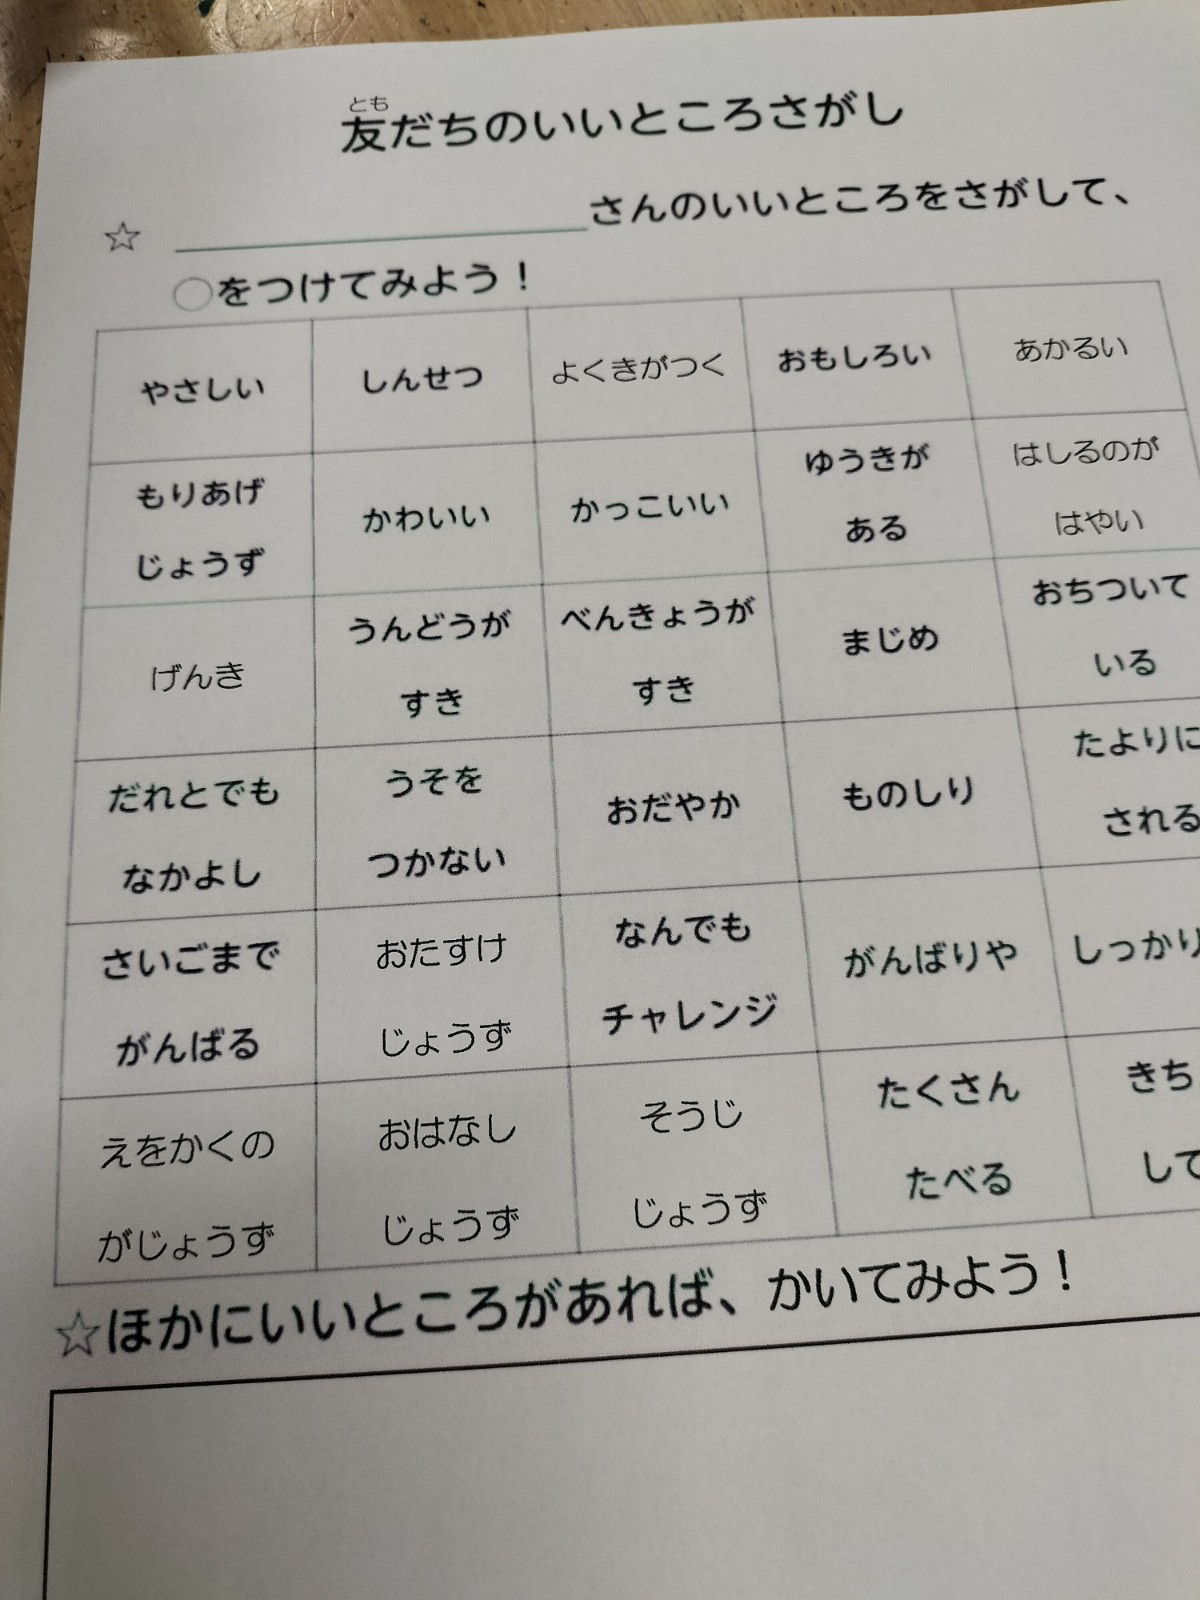 とも
友だちのいいところさがし
☆ さんのいいところをさがして、
○をつけてみよう！
やさしい しんせつ よくきがつく おもしろい あかるい
もりあげ
じょうず
かわいい かっこいい
ゆうきが
ある
はしるのが
はやい
げんき
うんどうが
すき
べんきょうが
すき
まじめ
おちついて
いる
だれとでも
なかよし
うそを
つかない
おだやか ものしり
たよりに
される
さいごまで
がんばる
おたすけ
じょうず
なんでも
チャレンジ
がんばりや しっかり
えをかくの
がじょうず
おはなし
じょうず
そうじ
じょうず
たくさん
たべる
きち
して
☆ほかにいいところがあれば、かいてみよう！